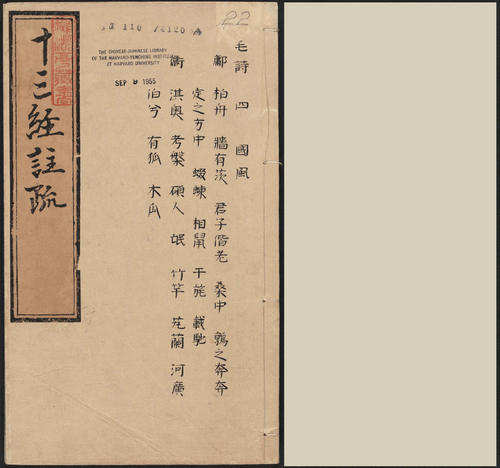 22
THE CHINESE-JAPANESE LIBRARY
OF THE HARVARD-YENCHING INSTITUTE
AT HARVARD UNIVERSITY
SEP 9 1955
毛詩 四 國風
鄘 柏舟 牆有茨 君子偕老 桑中 鶉之奔奔
定之方中 蝃蝀 相鼠 干旄 載馳
衛 淇奧 考槃 碩人 氓 竹竿 芄蘭 河廣
伯兮 有狐 木瓜
十三經註疏